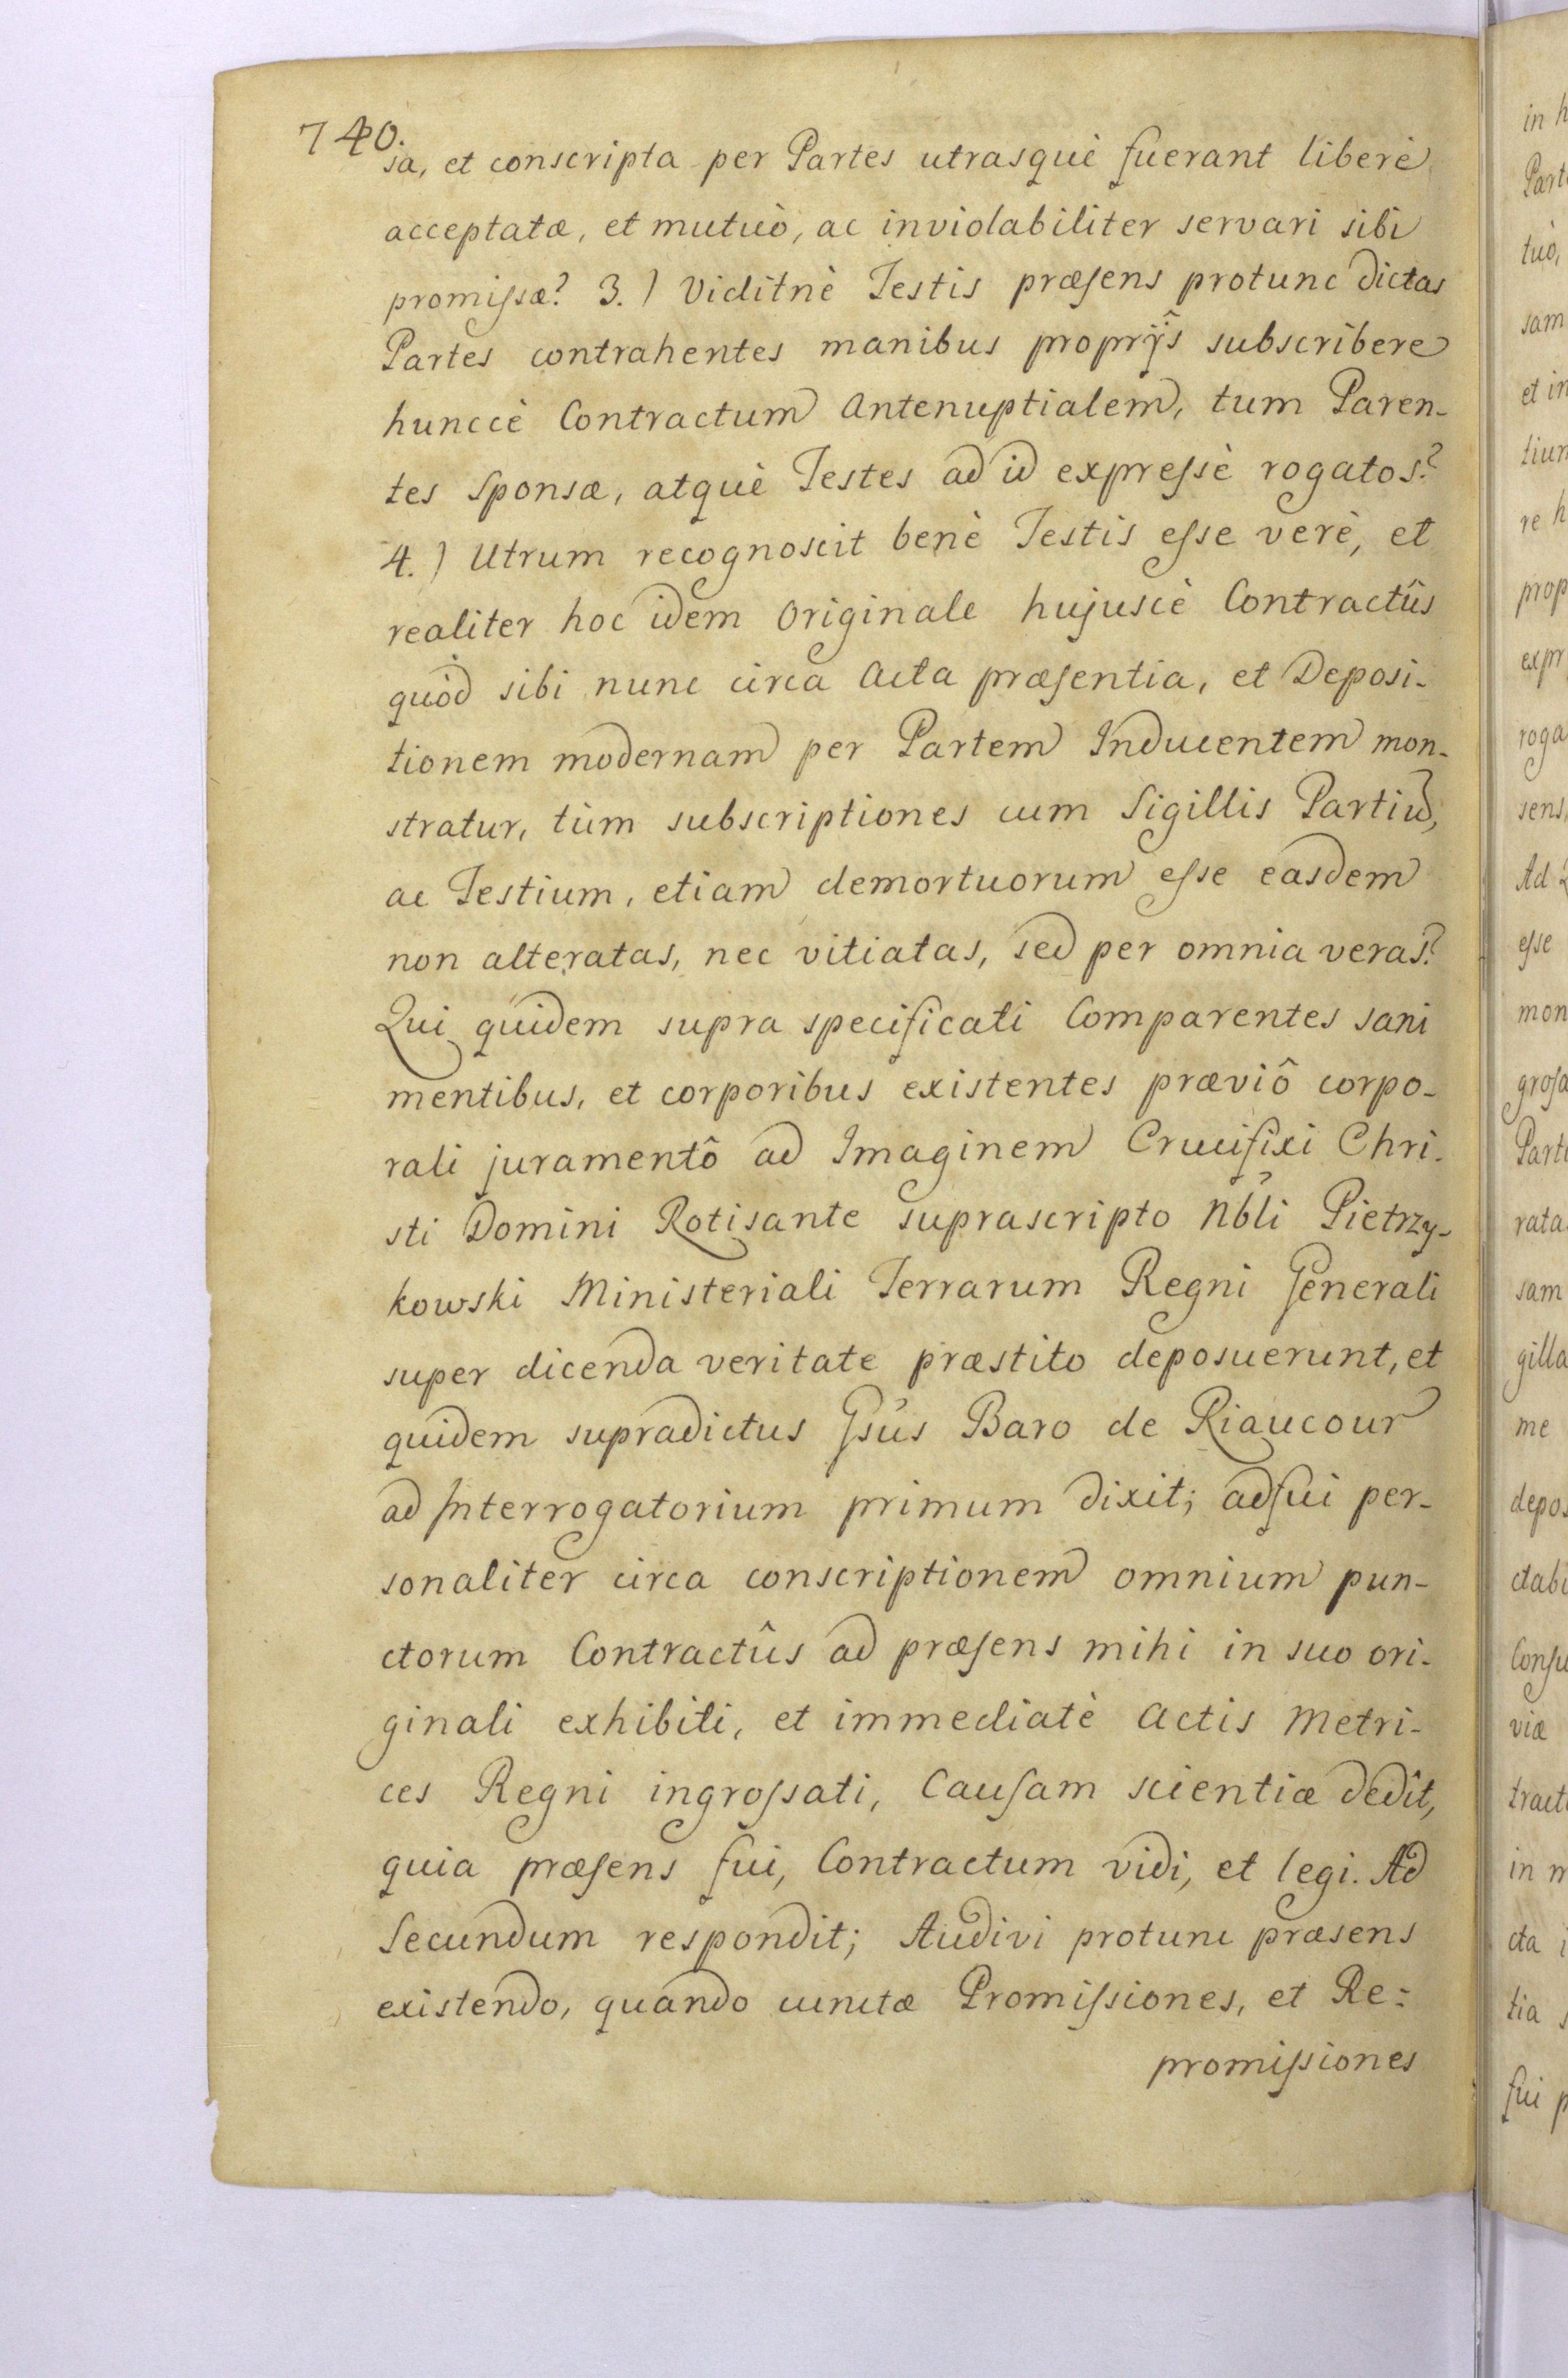 740.
sa, et conscripta per Partes utrasquè fuerant liberè
acceptatæ, et mutuò, ac inviolabiliter servari sibi
promiſsæ? 3.) Viditnè Testis præſens protunc dictas
Partes contrahentes manibus proprijs subscribere
huncce Contractum Antenuptialem, tum Paren-
tes Sponsæ, atquè Testes ad id expreſsè rogatos?
4.) Utrum recognoscit benè Testis eſse verè, et
realiter hoc idem Originale hujuscè Contractûs
quòd sibi nunc circa Acta præſentia, et Deposi-
tionem modernam per Partem Inducentem mon-
stratur, tùm subscriptiones cum Sigillis Partiũ,
ac Testium, etiam demortuorum eſse easdem
non alteratas, nec vitiatas, sed per omnia veras?
Qui quidem supra specificati Comparentes sani
mentibus, et corporibus existentes præviô corpo-
rali juramentô ad Imaginem Crucifixi Chri-
sti Domini Rotisante suprascripto Nbli Pietrzy-
kowski Ministeriali Terrarum Regni Generali
super dicenda veritate præstito deposuerunt, et
quidem supradictus Gsus Baro de Riaucour
ad Interrogatorium primum dixit; adfui per-
sonaliter circa conscriptionem omnium pun-
ctorum Contractûs ad præſens mihi in suo ori-
ginali exhibiti, et immediatè Actis Metri-
ces Regni ingroſsati, Cauſam scientiæ dedit,
quia præſens fui, Contractum vidi, et legi. Ad
Secundum respondit; Audivi protunc præsens
existendo, quando cunctæ Promiſsiones, et Re:
promiſsiones
in
Part
tuò,
sam
et in
tium
re h
prop
expr
roga
sens,
Ad
eſse
mon
groſa
Part
rata
sam
gilla
me
depos
ctabi
Conſu
viæ
tract
in m
cta
tia
fui p